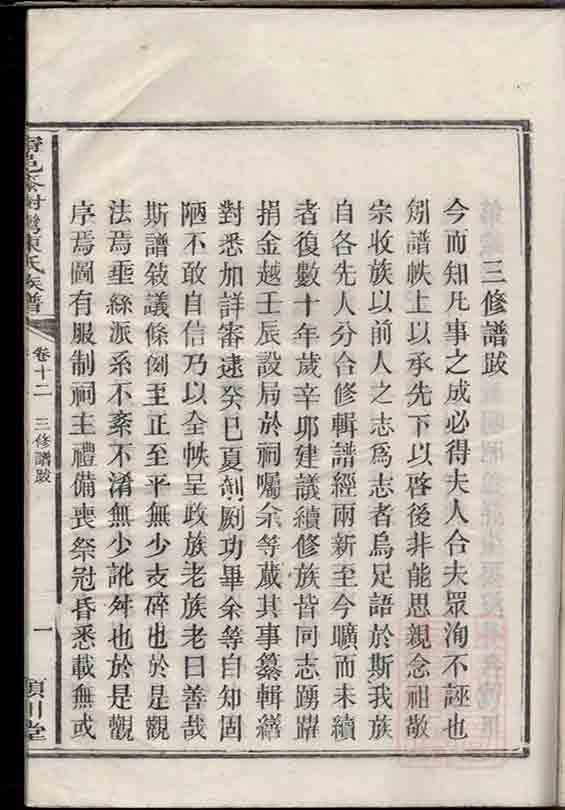 三修譜跋
今而知凡事之成必得夫人合夫眾洵不誣也
矧譜帙上以承先下以啓後非能思親念祖敬
宗收族以前人之志爲志者烏足語於斯我族
自各先人分合修輯譜經兩新至今曠而未續
者復數十年歲辛卯建議續修族皆同志踴躍
捐金越壬辰設局於祠囑余等蕆其事纂輯繕
對悉加詳審逮癸巳夏剞劂功畢余等自知固
陋不敢自信乃以全帙呈政族老族老曰善哉
斯譜敘議條例至正至平無少支碎也於是觀
法焉垂絲派系不紊不淆無少訛舛也於是觀
序焉圖有服制祠主禮備喪祭冠昏悉載無或
氏族譜
卷十二
三修譜跋
一
川堂